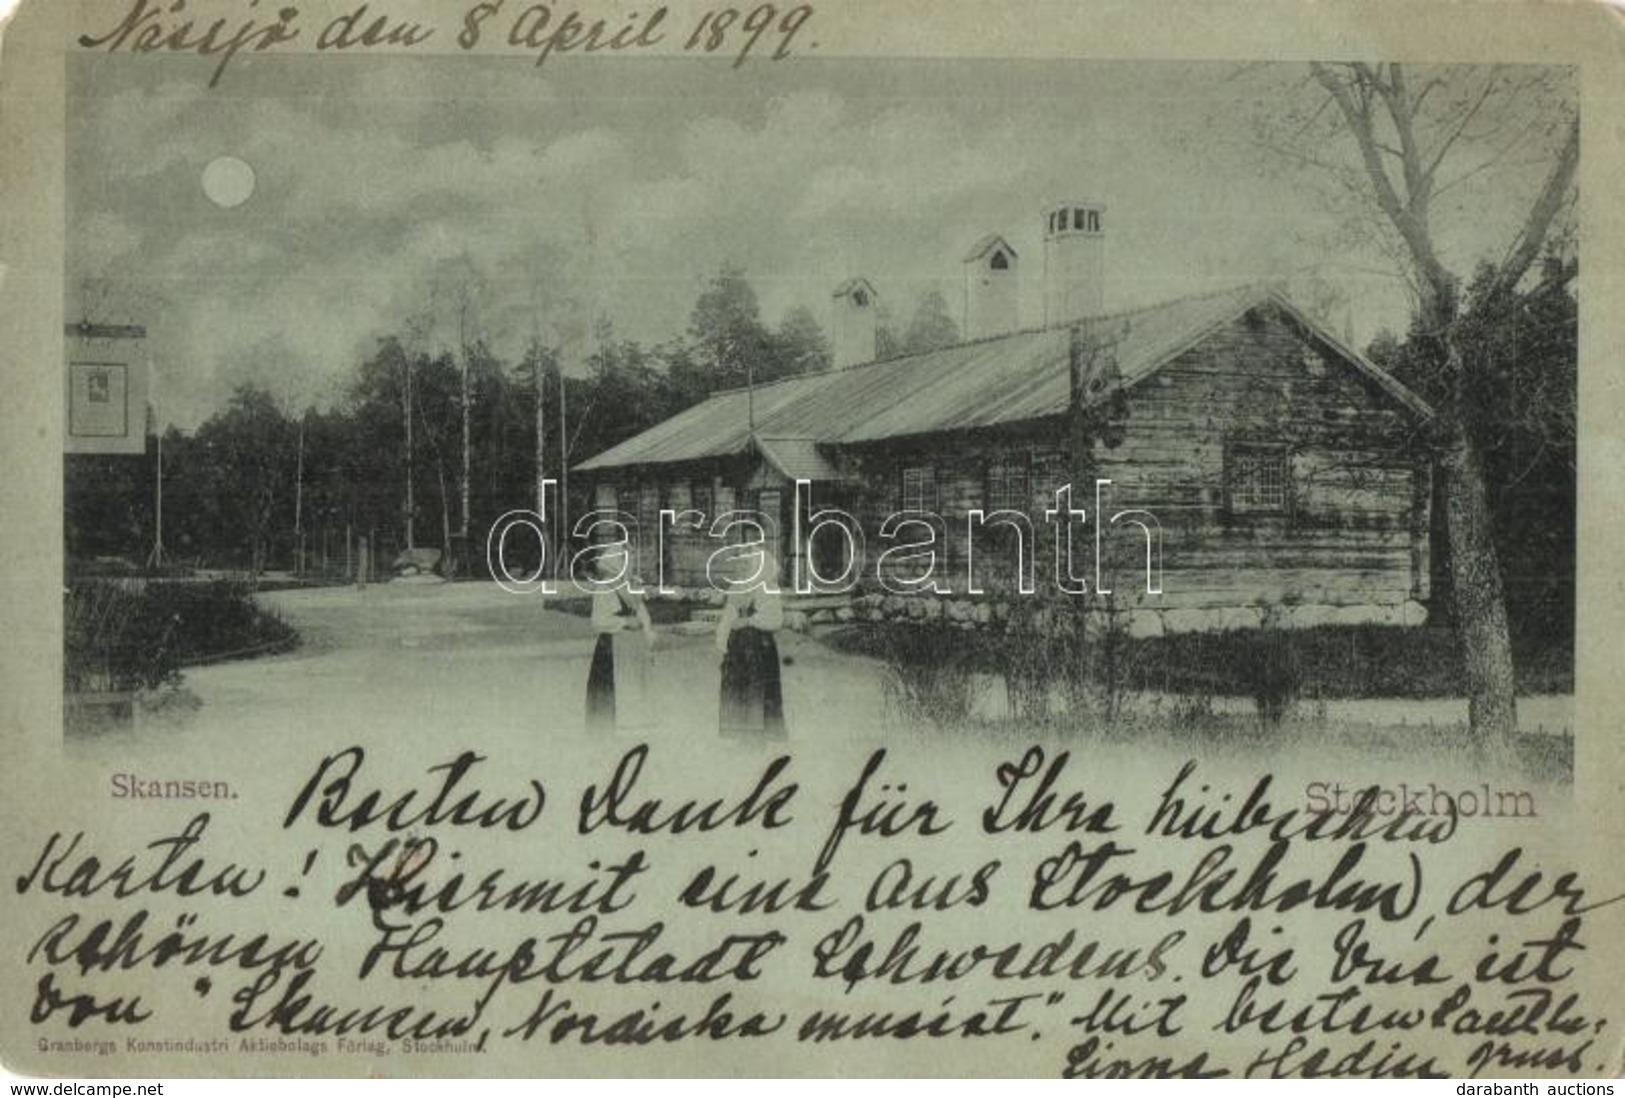 Nässjö den 8 April 1899.
darabanth
Skansen.
Stockholm
Besten Dank für Ihre hübschen
Karten! Hiermit eine aus Stockholm, der
schönen Hauptstadt Schwedens. Die Vue ist
von "Skansen, Nordiska museet." Mit besten
Granbergs Konstindustri Aktiebolags Förlag, Stockholm.
Hedin gruss.
darabanth auctions
www.darabanth.com